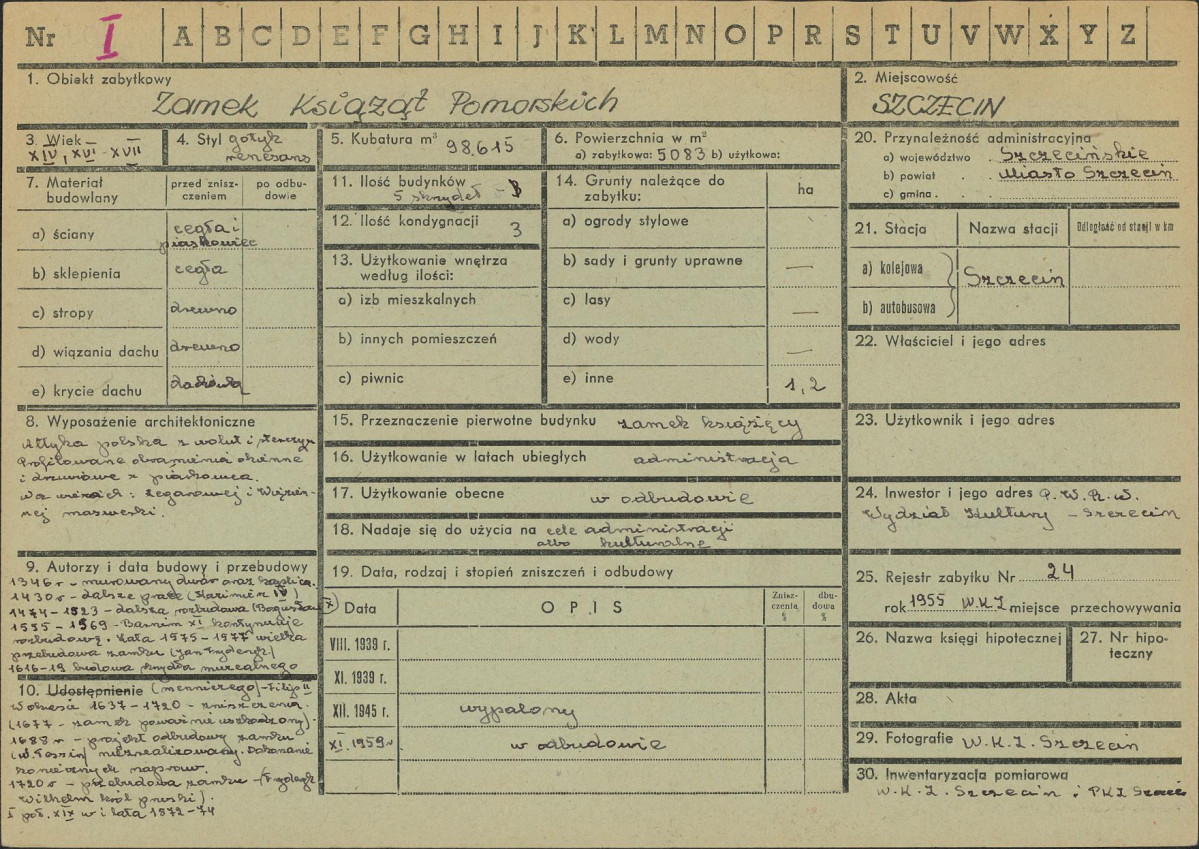 Nr I A B C D E F G H I J K L M N O P R S T U V W X Y Z
1. Obiekt zabytkowy
Zamek Książąt Pomorskich
2. Miejscowość
SZCZECIN
3. Wiek
XIV, XVI - XVII
4. Styl gotyk
renesans
5. Kubatura m³ 98.615
6. Powierzchnia w m²
a) zabytkowa: 5083 b) użytkowa:
7. Materiał
budowlany
przed znisz-
czeniem
po odbu-
dowie
a) ściany cegła i
piaskowiec
b) sklepienia cegła
c) stropy drewno
d) wiązania dachu drewno
e) krycie dachu dachówka
8. Wyposażenie architektoniczne
Attyka polska z wolut i sterczyn
Profilowane obramienia okienne
i drzwiowe z piaskowca.
Na wieżach: Zegarowej i Więzien-
nej
9. Autorzy i data budowy i przebudowy
1346 r - murowany dwór oraz kaplica.
1430 r - dalsze prace (Kazimierz IV)
1474 - 1523 - dalsza rozbudowa (Bogusław X)
1555 - 1569 - Barnim XI kontynuuje
rozbudowę. Lata 1575-1577 wielka
przebudowa zamku (Jan Fryderyk)
1616-19 budowa skrzydła muzealnego
10. Udostępnienie (menniczego) - Filip II
W okresie 1637-1720 - zniszczenia.
(1677 - zamek poważnie uszkodzony).
1688 r - projekt odbudowy zamku
niezrealizowany. Dokonane
koniecznych napraw.
1720 r - przebudowa zamku - (Fryderyk
Wilhelm król pruski).
I poł. XIX w i lata 1872-74
11. Ilość budynków
5 skrzydeł -
12. Ilość kondygnacji 3
13. Użytkowanie wnętrza
według ilości:
a) izb mieszkalnych
b) innych pomieszczeń
c) piwnic
14. Grunty należące do
zabytku:
ha
a) ogrody stylowe
b) sady i grunty uprawne —
c) lasy —
d) wody —
e) inne 1,2
15. Przeznaczenie pierwotne budynku zamek książęcy
16. Użytkowanie w latach ubiegłych administracja
17. Użytkowanie obecne w odbudowie
18. Nadaje się do użycia na cele administracji
albo kulturalne
19. Data, rodzaj i stopień zniszczeń i odbudowy
Data
OPIS
Znisz-
czenia
%
dbu-
dowa
%
VIII. 1939 r.
XI. 1939 r.
XII. 1945 r. wypalony
XI. 1959 r w odbudowie
20. Przynależność administracyjna
a) województwo Szczecińskie
b) powiat Miasto Szczecin
c) gmina
21. Stacja
Nazwa stacji
Odległość od stacji w km
a) kolejowa
Szczecin
b) autobusowa
22. Właściciel i jego adres
23. Użytkownik i jego adres
24. Inwestor i jego adres P.W.R.W.
Wydział Kultury - Szczecin
25. Rejestr zabytku Nr 24
rok 1955 W.K.Z miejsce przechowywania
26. Nazwa księgi hipotecznej
27. Nr hipo-
teczny
28. Akta
29. Fotografie W.K.Z. Szczecin
30. Inwentaryzacja pomiarowa
W.K.Z. Szczecin i PKZ Szczecin